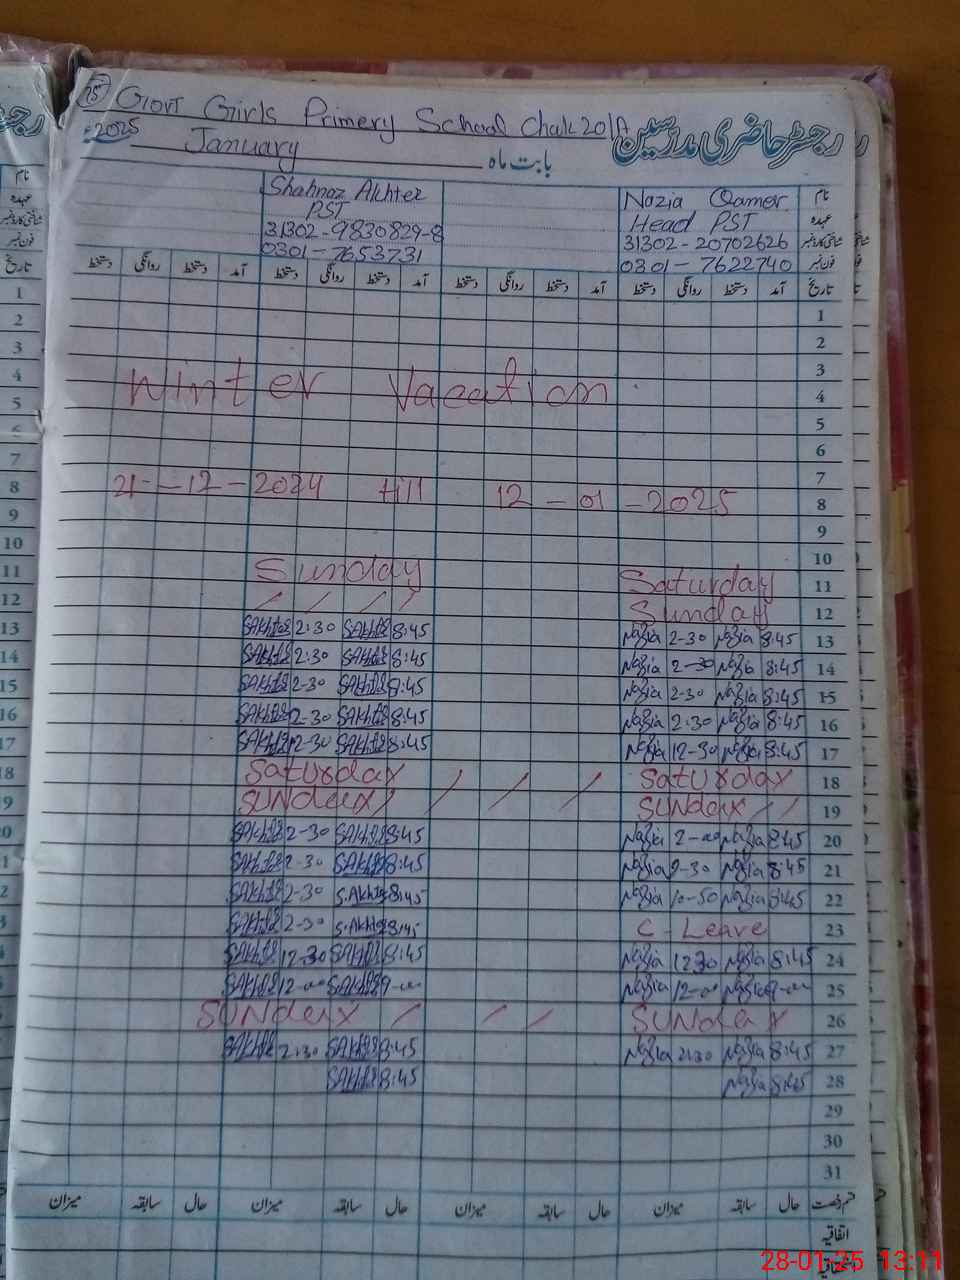 15 Govt Girls Primery School Chak 201A
رجسٹر حاضری مدرسین
2025 January بابت ماہ
نام Nazia Qamer Shahnaz Akhter
عہدہ Head PST PST
شناختی کارڈ نمبر 31302-20702626 31302-9830829-8
فون نمبر 0301-7622740 0301-7653731
تاریخ آمد دستخط روانگی دستخط آمد دستخط روانگی دستخط آمد دستخط روانگی دستخط آمد دستخط روانگی دستخط
1
2
3
Winter Vacation 4
5
6
7
21-12-2024 till 12-01-2025 8
9
10
Sunday Saturday 11
Sunday 12
SAkhter 2:30 SAkhter 8:45 Nazia 2-30 Nazia 8:45 13
SAkhter 2:30 SAkhter 8:45 Nazia 2-30 Nazia 8:45 14
SAkhter 2-30 SAkhter 8:45 Nazia 2-30 Nazia 8:45 15
SAkhter 2-30 SAkhter 8:45 Nazia 2:30 Nazia 8:45 16
SAkhter 12-30 SAkhter 8:45 Nazia 12-30 Nazia 8:45 17
Saturday / / / Saturday 18
Sunday / / / / Sunday / / 19
SAkhter 2-30 SAkhter 8:45 Nazia 2-00 Nazia 8:45 20
SAkhter 2-30 SAkhter 8:45 Nazia 2-30 Nazia 8:45 21
SAkhter 2-30 S.Akhter 8:45 Nazia 10-50 Nazia 8:45 22
SAkhter 2-30 S.Akhter 8:45 C-Leave 23
SAkhter 12-30 SAkhter 8:45 Nazia 1230 Nazia 8:45 24
SAkhter 12-00 SAkhter 9-00 Nazia 12-00 Nazia 9-00 25
Sunday / / / Sunday 26
SAkhter 2:30 SAkhter 8:45 Nazia 2:30 Nazia 8:45 27
SAkhter 8:45 Nazia 8:45 28
29
30
31
قسم رخصت حال سابقہ میزان حال سابقہ میزان حال سابقہ میزان حال سابقہ میزان
اتفاقیہ
28-01-25 13:11